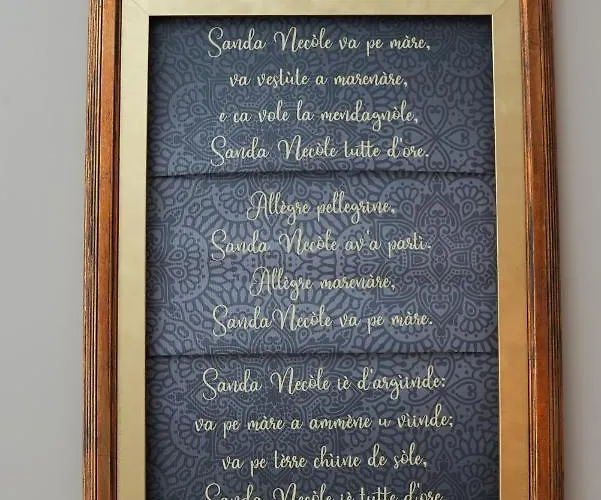 Sanda Necòle va pe màre,
va vestùte a marenàre,
e ca vole la mendagnòle,
Sanda Necòle tutte d'ore.
Allègre pellegrine,
Sanda Necòle av'a partì.
Allègre marenàre,
Sanda Necòle va pe màre.
Sanda Necòle iè d'argiùnde:
va pe màre a ammène u vìinde;
va pe tèrre chiìne de sòle,
Sanda Necòle iè tutte d'ore